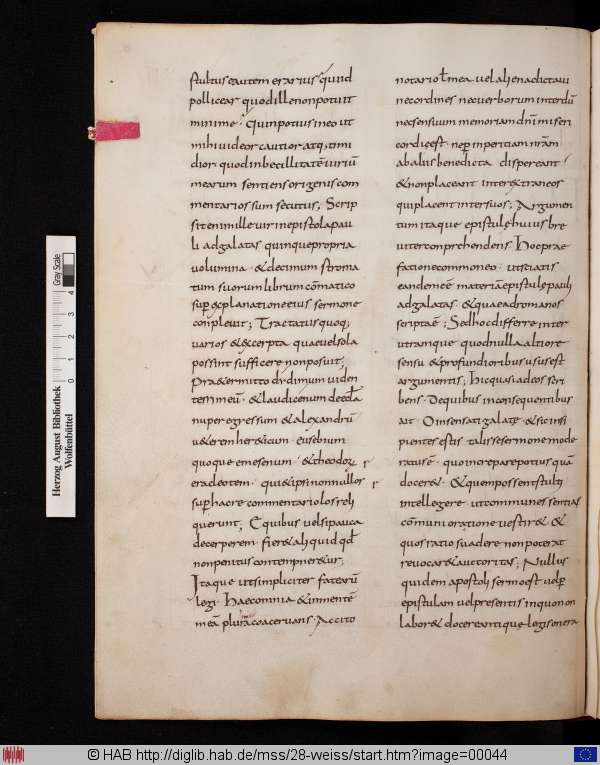 stultus & autem erarius quid
pollicear quod ille non potuit
minime; Quin potius in eo ut
mihi videor cautior atq; timi
dior; quod inbecillitatē viriū
mearum sentiens origenis com
mentarios sum secutus; Scrip
sit enim ille vir in epistola pau
li ad galatas quinque propria
volumina · & decimum stroma
tum suorum librum cōmatico
sup explanatione eius sermone
conplevit; Tractatus quoq;
varios & excerpta quae vel sola
possint sufficere non posuit;
Praetermitto didimum viden
tem meū · & laudicenum de eccla
nuper egressum & alexandrū
veterem hereticum · eusebium
quoque emesenum · & theodorū
eracleotem · qui & ipsi nonnullos
sup hac re commentariolos reli
querunt; E quibus vel si pauca
decerperem · fieret aliquid qd
non penitus contempneretur;
Itaque ut simpliciter fatear
legi · haec omnia & in mente
mea plurima coacervans · Accito
notario l mea vel aliena dictavi
nec ordines nec verborum interdū
nec sensuum memoriam dnī miseri
cordię est · ne p inperitiam nram
ab aliis bene dicta dispereant
& non placeant inter extraneos
qui placent inter suos; Argumen
tum itaque epistulę huius bre
viter conprehendens Hoc prae
fatione commoneo · ut sciatis
eandem eē materiā epistulę pauli
ad galatas & quae ad romanos
scripta ē; Sed hoc differre inter
utramque quod in illa altiore
sensu & profundioribus usus est
argumentis; Hic quasi ad eos scri
bens · De quibus in consequentibus
ait · O insensati galatę · & sic insi
pientes estis · tali se sermone mode
ratus ē · quo increpare potius quā
docere & quem possent stulti
intellegere · ut communes sentias
cōmuni oratione vestiret &
quos ratio suadere non poterat
revocaret auctoritas; Nullus
quidem apostoli sermo est vel p
epistulam vel presentis in quo non
laboret docere antique legis onera
Herzog August Bibliothek
Wolfenbüttel
Gray Scale
0 1 2 3 4
© HAB http://diglib.hab.de/mss/28-weiss/start.htm?image=00044